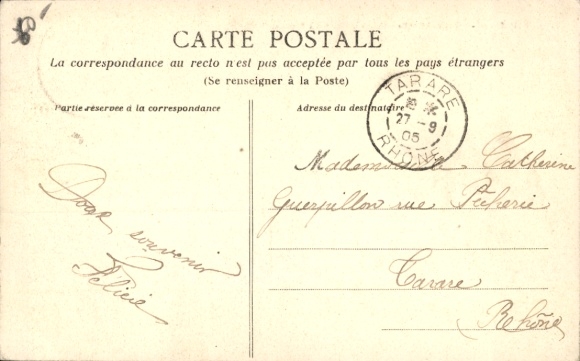 CARTE POSTALE
La correspondance au recto n'est pas acceptée par tous les pays étrangers
(Se renseigner à la Poste)
Partie réservée à la correspondance
Adresse du destinataire
TARARE
27 - 9
05
RHÔNE
Doux souvenir
Félicie
Mademoiselle Catherine
Guerpillon rue Pêcherie
Tarare
Rhône